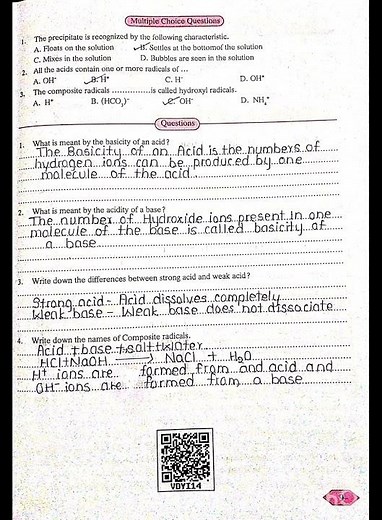 Multiple Choice Questions
1. The precipitate is recognized by the following characteristic.
A. Floats on the solution B. Settles at the bottomof the solution
C. Mixes in the solution D. Bubbles are seen in the solution
2. All the acids contain one or more radicals of ...
A. OH⁻ B. H⁺ C. H⁻ D. OH⁺
3. The composite radicals ................is called hydroxyl radicals.
A. H⁺ B. (HCO₃)⁻ C. OH⁻ D. NH₄⁺
Questions
1. What is meant by the basicity of an acid?
The Basicity of an Acid is the numbers of
hydragen ions can be produced by one
molecule of the acid.
2. What is meant by the acidity of a base?
The number of Hydroxide ions present in one
molecule of the base is called basicity of
a base
3. Write down the differences between strong acid and weak acid?
Strong acid - Acid dissolves completely
Weak base - Weak base does not dissociate
4. Write down the names of Composite radicals.
Acid + base → salt + water
HCl+NaOH → NaCl + H₂O
H⁺ ions are formed from and acid and
OH⁻ ions are formed from a base
VDYI14